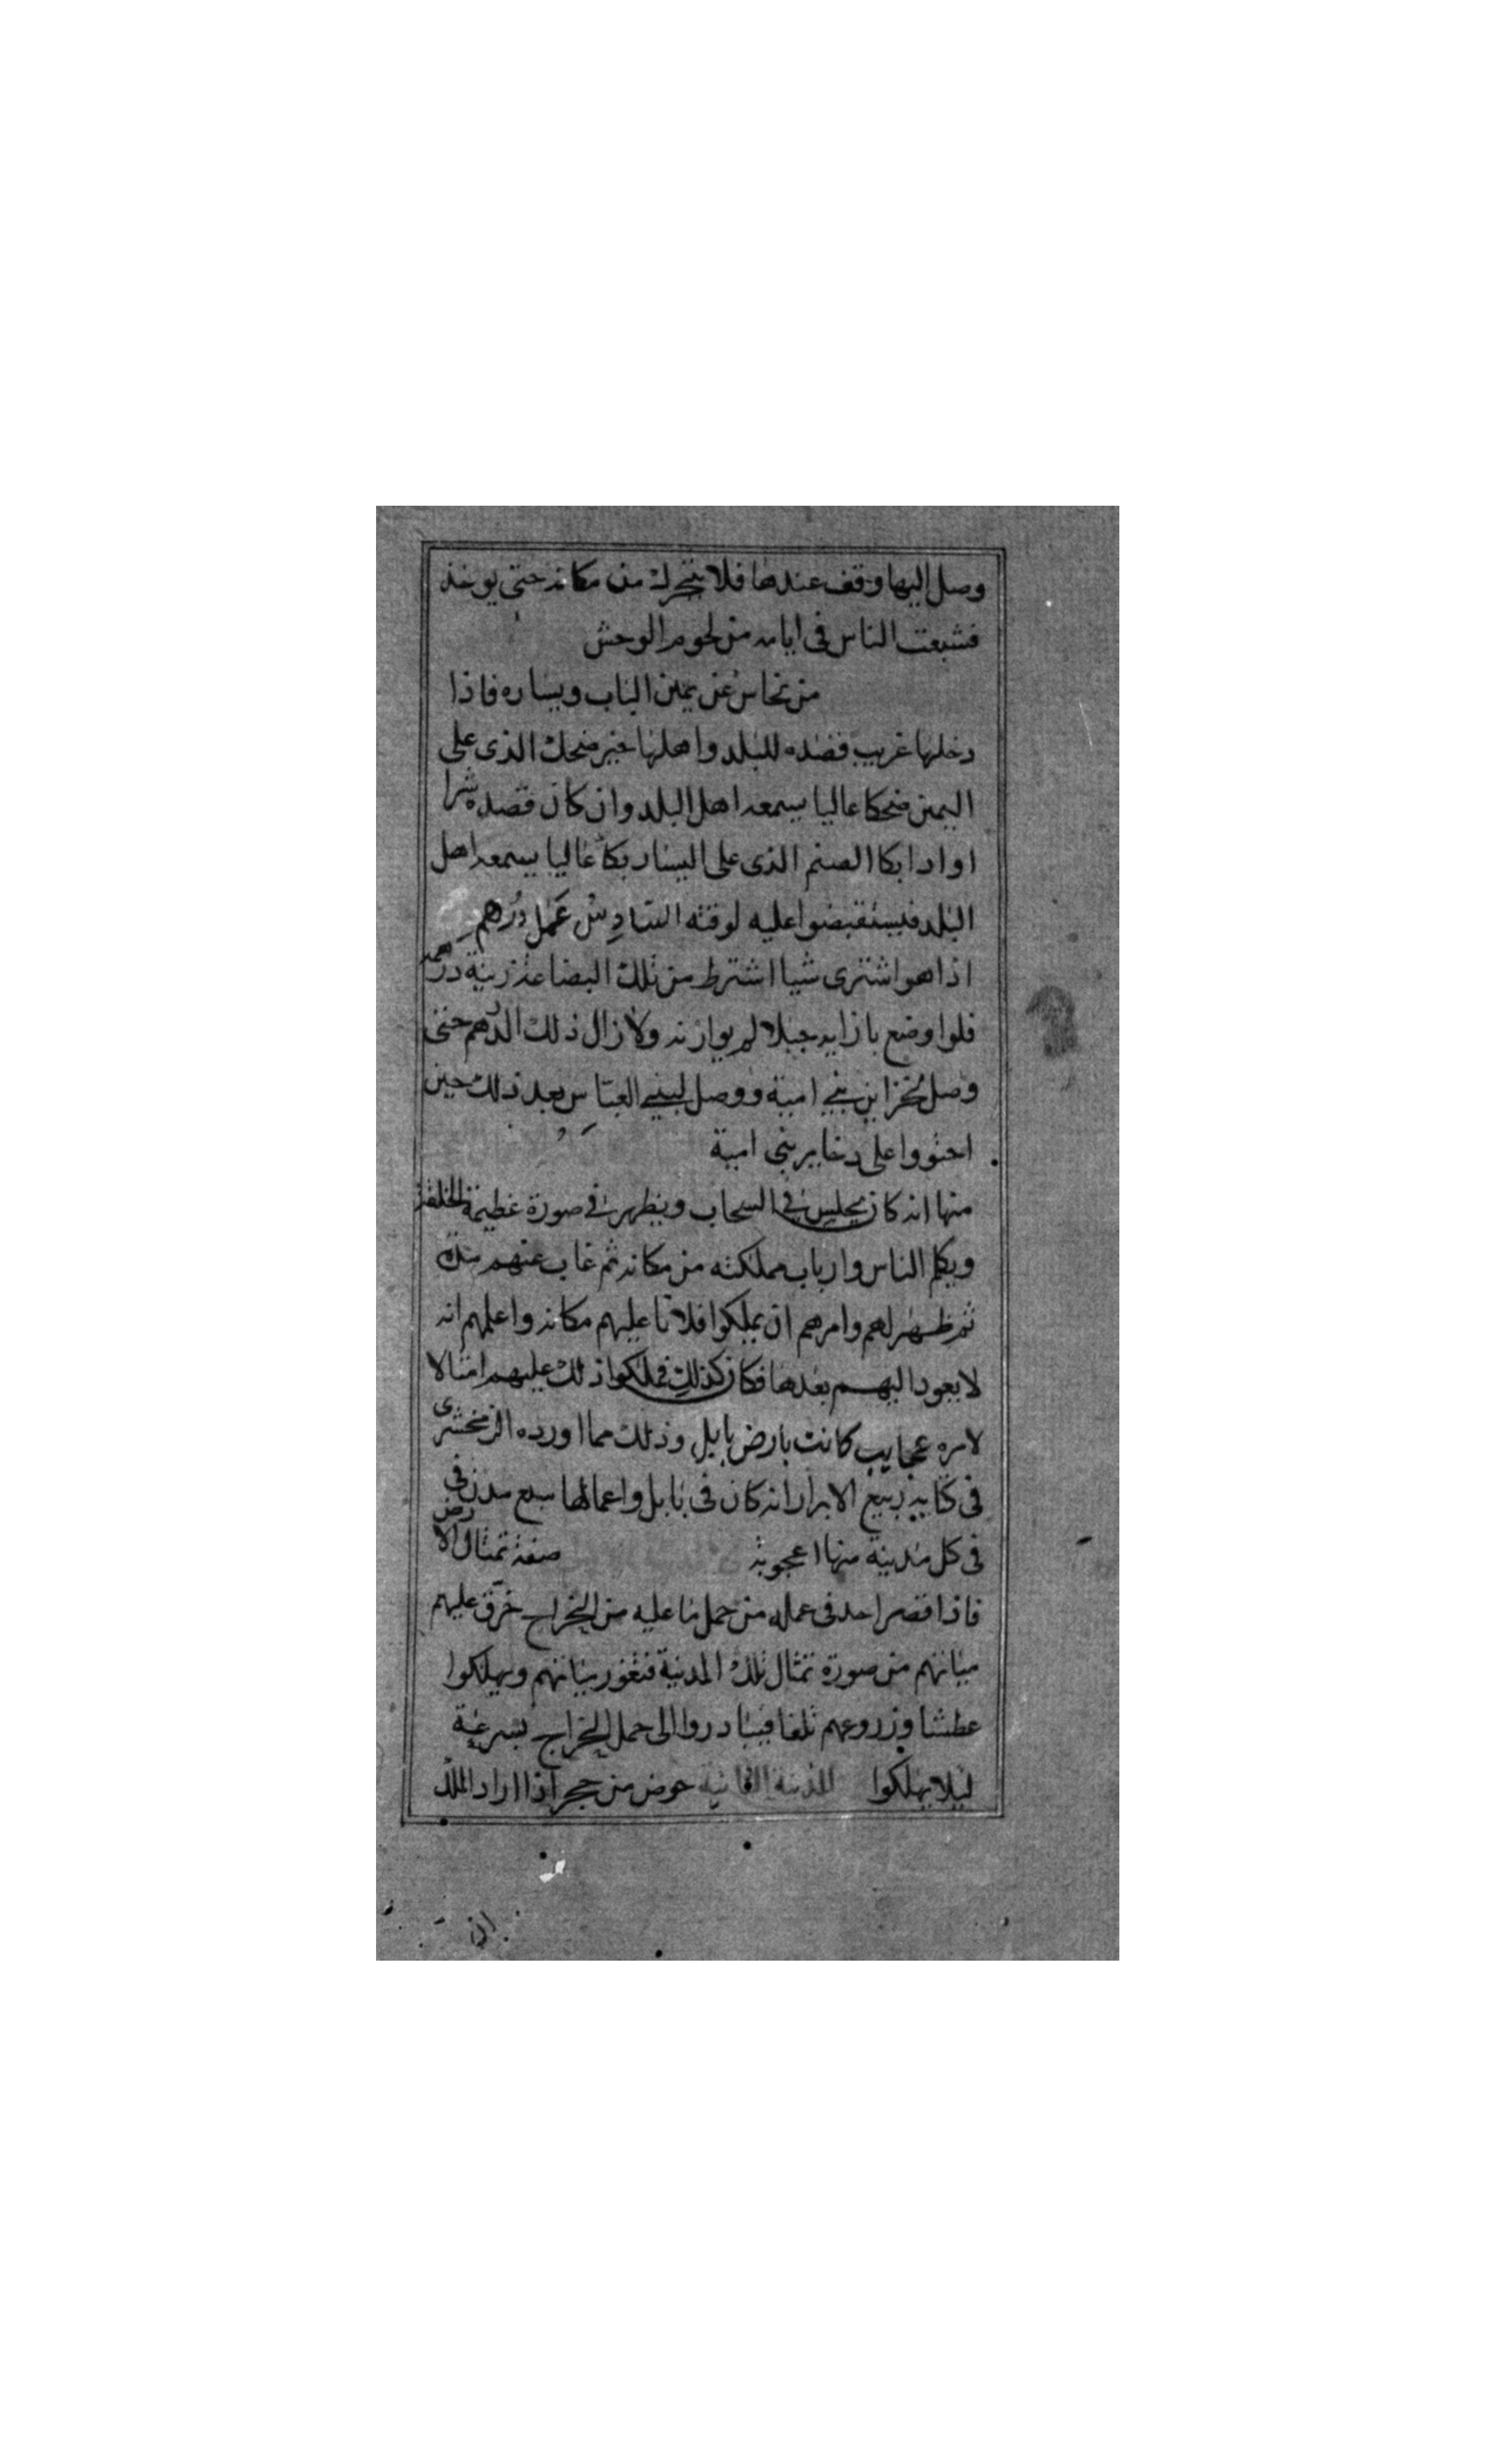 وصل اليها وقف عندها فلا يتحرك من مكانه حتى يوخذ
فشبعت الناس فى ايامه من لحوم الوحش
من نحاس عن يمين الباب ويساره فاذا
دخلها غريب قصده للبلد واهلها خير ضحك الذى على
اليمين ضحكا عاليا يسمعه اهل البلد وان كان قصده شرا
او اذا بكا الصنم الذى على اليسار بكا عاليا يسمعه اهل
البلد فيستقبضوا عليه لوقته السادس عمل درهم
اذا هو اشترى شيا اشترط من تلك البضاعة زينة درهمه
فلوا وضع بازايه جبلا لم يوازنه ولا زال ذلك الدرهم حتى
وصل لخزاين بني امية ووصل لبني العباس بعد ذلك حين
احتووا على دخاير بنى امية
منها انه كان يجلس في السحاب ويظهر في صورة عظيمة الخلقة
ويكلم الناس وارباب مملكته من مكانه ثم غاب عنهم مدة
ثم ظهر لهم وامرهم ان يملكوا فلانا عليهم مكانه واعلمهم انه
لا يعود اليهم بعدها فكان كذلك فملكوا ذلك عليهم امتثالا
لامره عجايب كانت بارض بابل وذلك مما اورده الزمخشرى
فى كتابه ربيع الابرار انه كان فى بابل واعمالها سبع مدن فى
فى كل مدينة منها اعجوبة صفة تمثال الارض
فاذا قصر احد فى عماله من حمل ما عليه من الخراج خرق عليهم
مياتهم من صورة تمثال تلك المدينة فتغور مياتهم ويهلكوا
عطشا وزروعهم تلفا فيبادروا الى حمل الخراج بسرعة
ليلا يهلكوا المدينة الثانية حوض من حجر اذا اراد الملك
ان